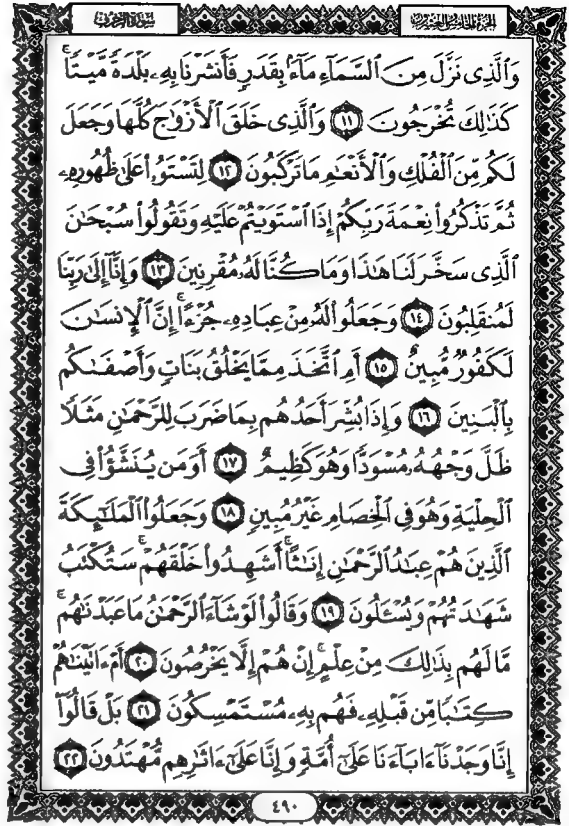 الجزء الخامس والعشرون
سورة الزخرف
وَٱلَّذِى نَزَّلَ مِنَ ٱلسَّمَآءِ مَآءَۢ بِقَدَرٍ فَأَنشَرْنَا بِهِۦ بَلْدَةً مَّيْتًاۚ
كَذَٰلِكَ تُخْرَجُونَ ١١ وَٱلَّذِى خَلَقَ ٱلْأَزْوَٰجَ كُلَّهَا وَجَعَلَ
لَكُم مِّنَ ٱلْفُلْكِ وَٱلْأَنْعَٰمِ مَا تَرْكَبُونَ ١٢ لِتَسْتَوُۥا۟ عَلَىٰ ظُهُورِهِۦ
ثُمَّ تَذْكُرُوا۟ نِعْمَةَ رَبِّكُمْ إِذَا ٱسْتَوَيْتُمْ عَلَيْهِ وَتَقُولُوا۟ سُبْحَٰنَ
ٱلَّذِى سَخَّرَ لَنَا هَٰذَا وَمَا كُنَّا لَهُۥ مُقْرِنِينَ ١٣ وَإِنَّآ إِلَىٰ رَبِّنَا
لَمُنقَلِبُونَ ١٤ وَجَعَلُوا۟ لَهُۥ مِنْ عِبَادِهِۦ جُزْءًاۚ إِنَّ ٱلْإِنسَٰنَ
لَكَفُورٌ مُّبِينٌ ١٥ أَمِ ٱتَّخَذَ مِمَّا يَخْلُقُ بَنَاتٍ وَأَصْفَىٰكُم
بِٱلْبَنِينَ ١٦ وَإِذَا بُشِّرَ أَحَدُهُم بِمَا ضَرَبَ لِلرَّحْمَٰنِ مَثَلًا
ظَلَّ وَجْهُهُۥ مُسْوَدًّا وَهُوَ كَظِيمٌ ١٧ أَوَمَن يُنَشَّؤُا۟ فِى
ٱلْحِلْيَةِ وَهُوَ فِى ٱلْخِصَامِ غَيْرُ مُبِينٍ ١٨ وَجَعَلُوا۟ ٱلْمَلَٰٓئِكَةَ
ٱلَّذِينَ هُمْ عِبَٰدُ ٱلرَّحْمَٰنِ إِنَٰثًاۚ أَشَهِدُوا۟ خَلْقَهُمْۚ سَتُكْتَبُ
شَهَٰدَتُهُمْ وَيُسْـَٔلُونَ ١٩ وَقَالُوا۟ لَوْ شَآءَ ٱلرَّحْمَٰنُ مَا عَبَدْنَٰهُمۗ
مَّا لَهُم بِذَٰلِكَ مِنْ عِلْمٍۖ إِنْ هُمْ إِلَّا يَخْرُصُونَ ٢٠ أَمْ ءَاتَيْنَٰهُمْ
كِتَٰبًا مِّن قَبْلِهِۦ فَهُم بِهِۦ مُسْتَمْسِكُونَ ٢١ بَلْ قَالُوٓا۟
إِنَّا وَجَدْنَآ ءَابَآءَنَا عَلَىٰٓ أُمَّةٍ وَإِنَّا عَلَىٰٓ ءَاثَٰرِهِم مُّهْتَدُونَ ٢٢
٤٩٠